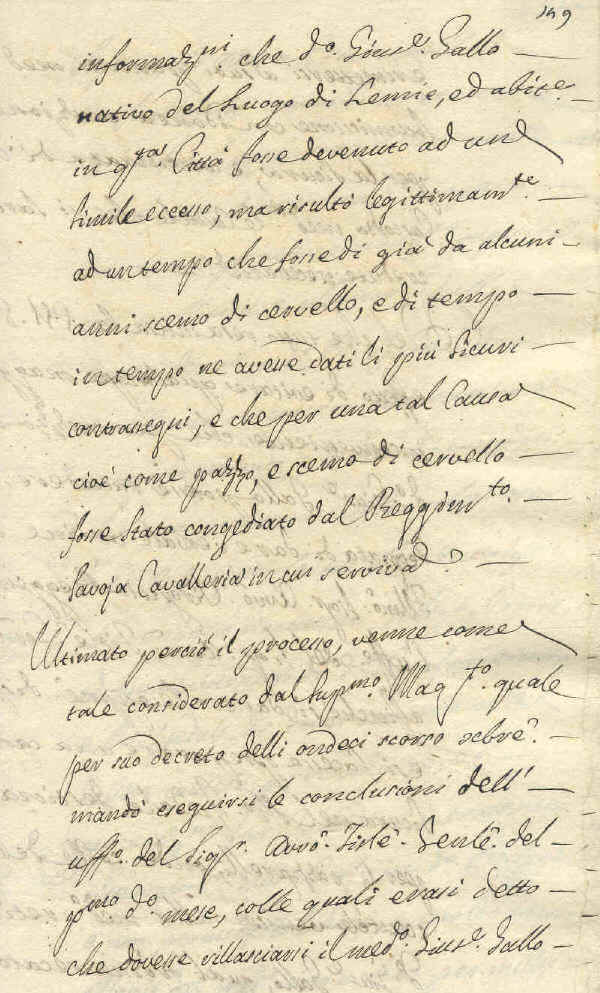 149
informaz.ni che d.o Gius.e Gallo
nativo del Luogo di Lennie, ed abit.e
in q.ta Città fosse devenuto ad un
simile ecesso, ma risultò legittimam.te
ad un tempo che fosse di già da alcuni
anni scemo di cervello, e di tempo
in tempo ne avesse dati li più sicuri
contrassegni, e che per una tal Causa
cioè come pazzo, e scemo di cervello
fosse stato congediato dal Reggim.to
Savoja Cavalleria in cui serviva.
Ultimato perciò il processo, venne come
tale considerato dal Sup.mo Mag.to quale
per suo decreto delli ondeci scorso xcbre
mandò eseguirsi le conclusioni dell'
uff.o del Sig.r Avvo. Fisle. Genle. del
p.mo d.o mese, colle quali erasi detto
che dovesse rillasciarsi il med.o Gius.e Gallo